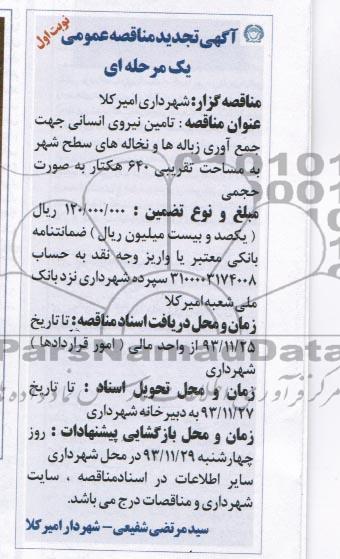 نوبت اول
آگهی تجدید مناقصه عمومی
یک مرحله ای
مناقصه گزار: شهرداری امیرکلا
عنوان مناقصه : تامین نیروی انسانی جهت
جمع آوری زباله ها و نخاله های سطح شهر
به مساحت تقریبی ۶۴۰ هکتار به صورت
حجمی
مبلغ و نوع تضمین : ۱۲۰/۰۰۰/۰۰۰ ریال
( یکصد و بیست میلیون ریال ) ضمانتنامه
بانکی معتبر یا واریز وجه نقد به حساب
۳۱۰۰۰۰۳۱۷۴۰۰۸ سپرده شهرداری نزد بانک
ملی شعبه امیرکلا
زمان و محل دریافت اسناد مناقصه: تا تاریخ
۹۳/۱۱/۲۵ از واحد مالی ( امور قراردادها )
شهرداری
زمان و محل تحویل اسناد : تا تاریخ
۹۳/۱۱/۲۷ به دبیرخانه شهرداری
زمان و محل بازگشایی پیشنهادات : روز
چهارشنبه ۹۳/۱۱/۲۹ در محل شهرداری
سایر اطلاعات در اسنادمناقصه ، سایت
شهرداری و مناقصات درج می باشد.
سیدمرتضی شفیعی – شهردار امیرکلا
ParsNamadData